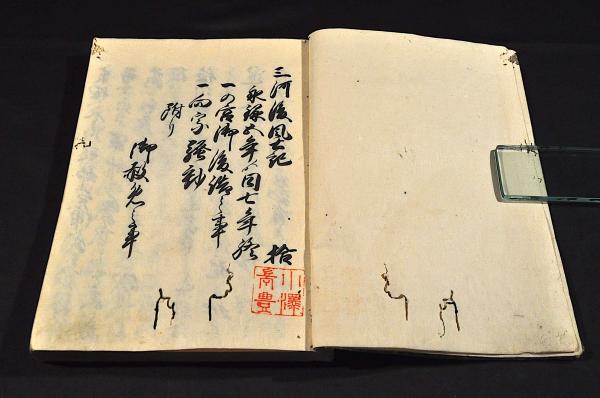 三河後風土記 拾
永禄六年ゟ同七年迄
一の宮御後詰之事
一向宗騒動
附り
御赦免之事
小澤
高豊